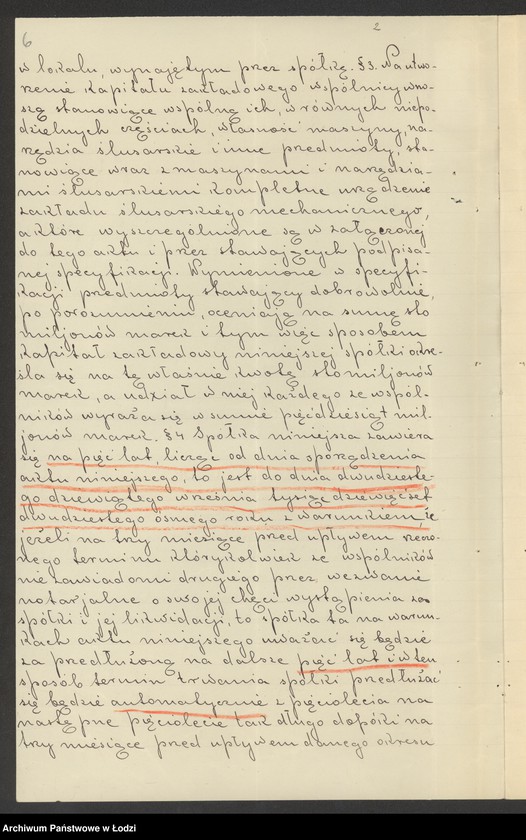 6
2
w lokalu, wynajętym przez spółkę. §3. Na utwo-
rzenie kapitału zakładowego wspólnicy wno-
szą stanowiące wspólną ich, w równych niepo-
dzielnych częściach, własność maszyny, na-
rzędzia ślusarskie i inne przedmioty, sta-
nowiące wraz z maszynami i narzędzia-
mi ślusarskiemi kompletne urządzenie
zakładu ślusarskiego mechanicznego,
a które wyszczególnione są w załączonej
do tego aktu i przez stawających podpisa-
nej specyfikacji. Wymienione w specyfi-
kacji przedmioty stawający dobrowolnie,
po porozumieniu, oceniają na sumę sto
miljonów marek i tym więc sposobem
kapitał zakładowy niniejszej spółki okre-
śla się na tę właśnie kwotę stomiljonów
marek, a udział w niej każdego ze wspól-
ników wyraża się w sumie pięćdziesiąt mil-
jonów marek. §4 Spółka niniejsza zawiera
się na pięć lat, licząc od dnia sporządzenia
aktu niniejszego, to jest do dnia dwudzieste-
go dziewiątego września tysiąc dziewięćset
dwudziestego ósmego roku z warunkiem, że
jeżeli na trzy miesiące przed upływem rzeczo-
nego terminu którykolwiek ze wspólników
nie zawiadomi drugiego przez wezwanie
notarjalne o swojej chęci wystąpienia ze
spółki i jej likwidacji, to spółka ta na warun-
kach aktu niniejszego uważać się będzie
za przedłużoną na dalsze pięć lat i w ten
sposób termin trwania spółki przedłużać
się będzie automatycznie z pięciolecia na
następne pięciolecie tak długo dopóki na
trzy miesiące przed upływem danego okresu
Archiwum Państwowe w Łodzi